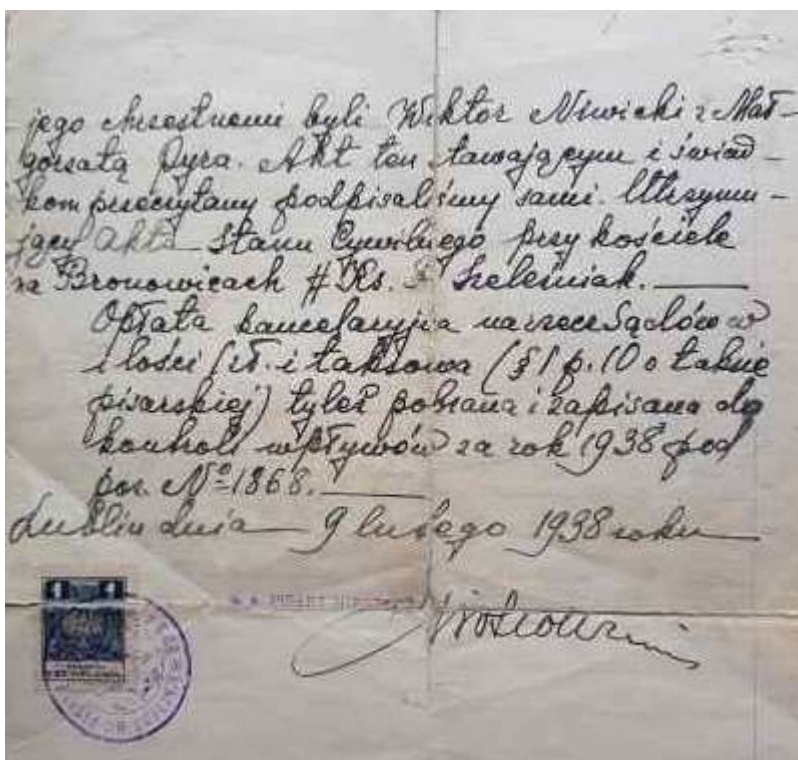 jego chrzestnemi byli Wiktor Niwicki z Mał-
gorzatą Dyra. Akt ten stawającym i świad-
kom przeczytany podpisaliśmy sami. Utrzymu-
jący Akta Stanu Cywilnego przy kościele
na Bronowicach # Ks. Szeleźniak.
Opłata kancelaryjna na rzecz Sądów w
ilości 1 zł. i taksowa (§ 1 p. 10 o taksie
pisarskiej) tyleż pobrana i zapisana do
kontroli wpływów za rok 1938 pod
poz. Nº 1868.
Lublin dnia 9 lutego 1938 roku
1 1